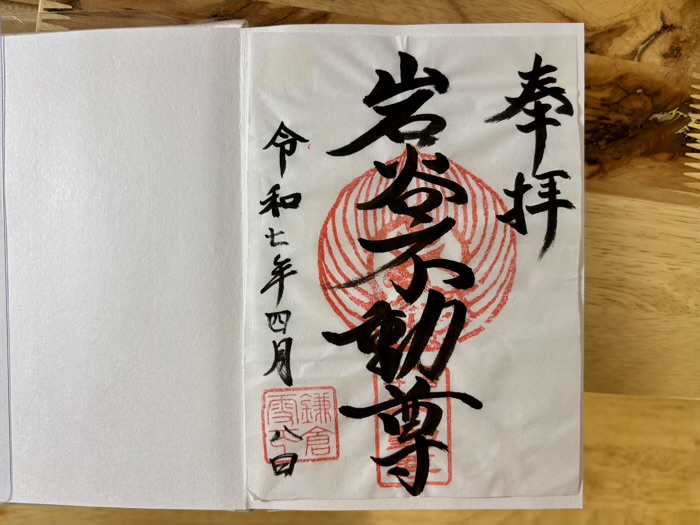 奉拝
岩谷不動尊
令和七年四月八日
鎌倉